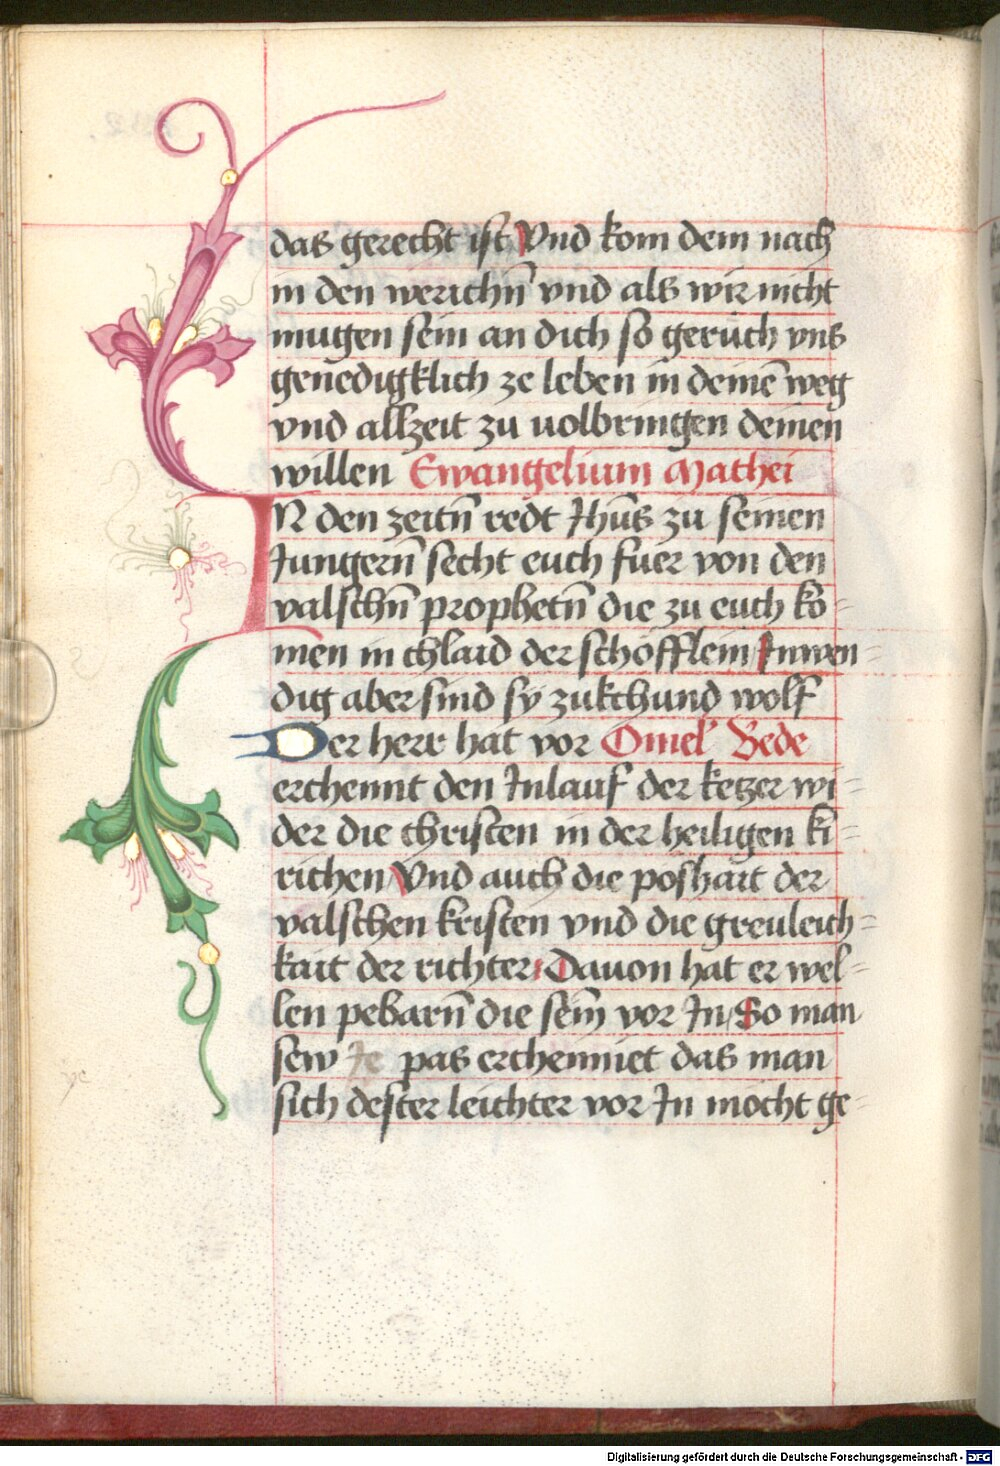 das gerecht ist Vnd kom dem nach
in den werichn̄ vnd als wir nicht
mugen sein an dich so gerůch vns
genedigklich ze leben in deinē weg
vnd allzeit zu uolbringen deinen
willen Ewangelium Mathei
IN den zeitn̄ redt Jhūs zu seinen
Jungern̄ secht euch fuer von den
valschn̄ prophetn̄ die zu euch ko=
men in chlaid der schöfflein Inwen=
dig aber sind sy zukchund wolf
Der herr hat vor Omel' Bede
erchennt den Inlauf der ketzer wi=
der die christen in der heiligen ki=
richen Vnd auch die poshait der
valschen kristen vnd die greuleich=
kait der richter Dauon hat er wel=
len pebarn̄ die sein vor In So man
sew Je pas erchenniet das man
sich dester leichter vor In mocht ge=
Digitalisierung gefördert durch die Deutsche Forschungsgemeinschaft - DFG